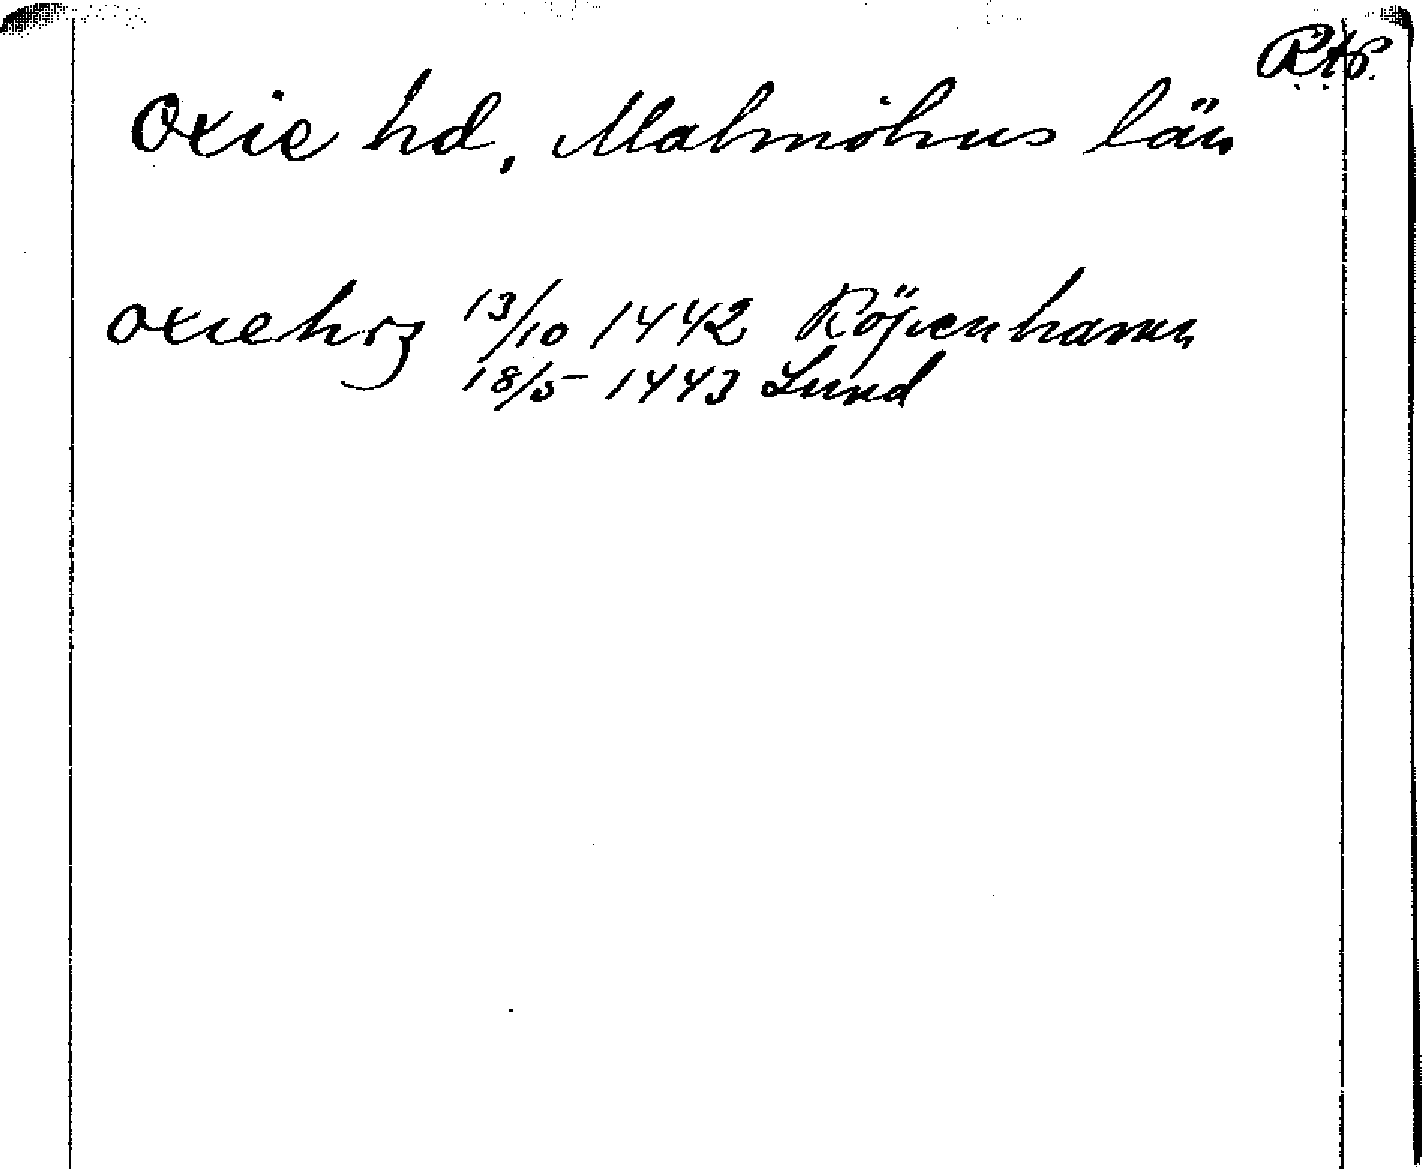 Rtp.
Oxie hd, Malmöhus län
oxiehrz 13/10 1442 Köpenhamn
18/5 1443 Lund